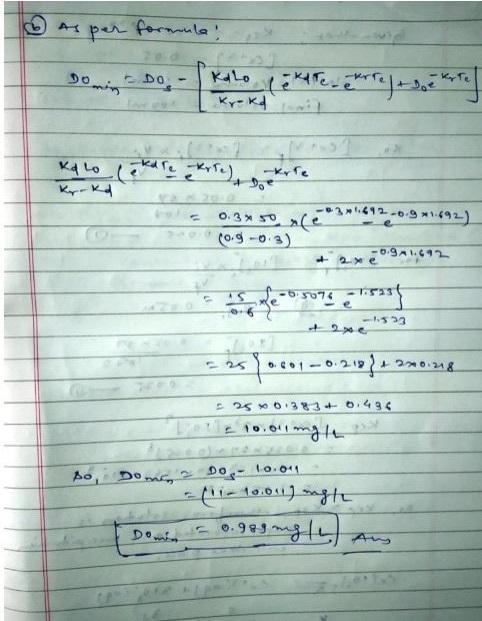 (b) As per formula:
DO_min = DO_s - [ KdLo / (Kr-Kd) (e^-KdTc - e^-KrTc) + D_o e^-KrTc ]
KdLo / (Kr-Kd) (e^-KdTc - e^-KrTc) + D_o e^-KrTc
= 0.3×50 / (0.9-0.3) × (e^-0.3×1.692 - e^-0.9×1.692)
+ 2×e^-0.9×1.692
= 15 / 0.6 × {e^-0.5076 - e^-1.523}
+ 2×e^-1.523
= 25 { 0.601 - 0.218 } + 2×0.218
= 25×0.383 + 0.436
= 10.011 mg/L
So, DO min = DO_s - 10.011
= (11-10.011) mg/L
DO min = 0.989 mg/L Ans